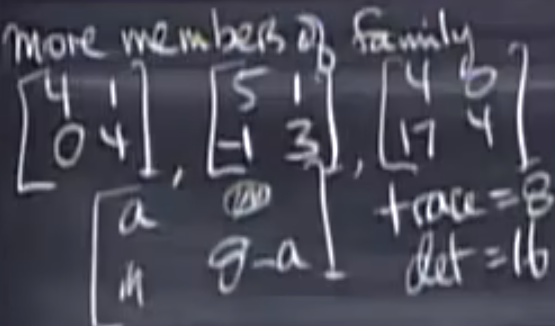 more members of family
[4 1
0 4], [5 1
-1 3], [4 0
17 4]
[a
8-a]
trace = 8
det = 16